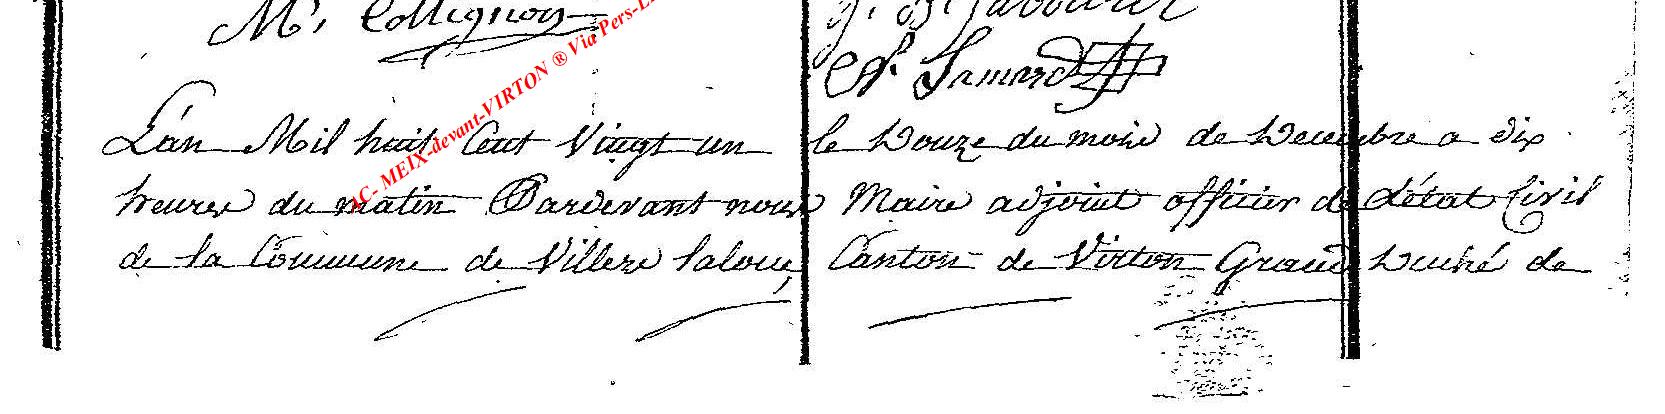 M. Collignon
J. B. Jabourel
AC- MEIX-devant-VIRTON ® Via Pers-L
L'an Mil huit Cent Vingt un le Douze du mois de Decembre a dix
heures du matin Pardevant nous Maire adjoint officier de L'état Civil
de la Commune de Villers laloue, Canton de Virton Grand Duché de